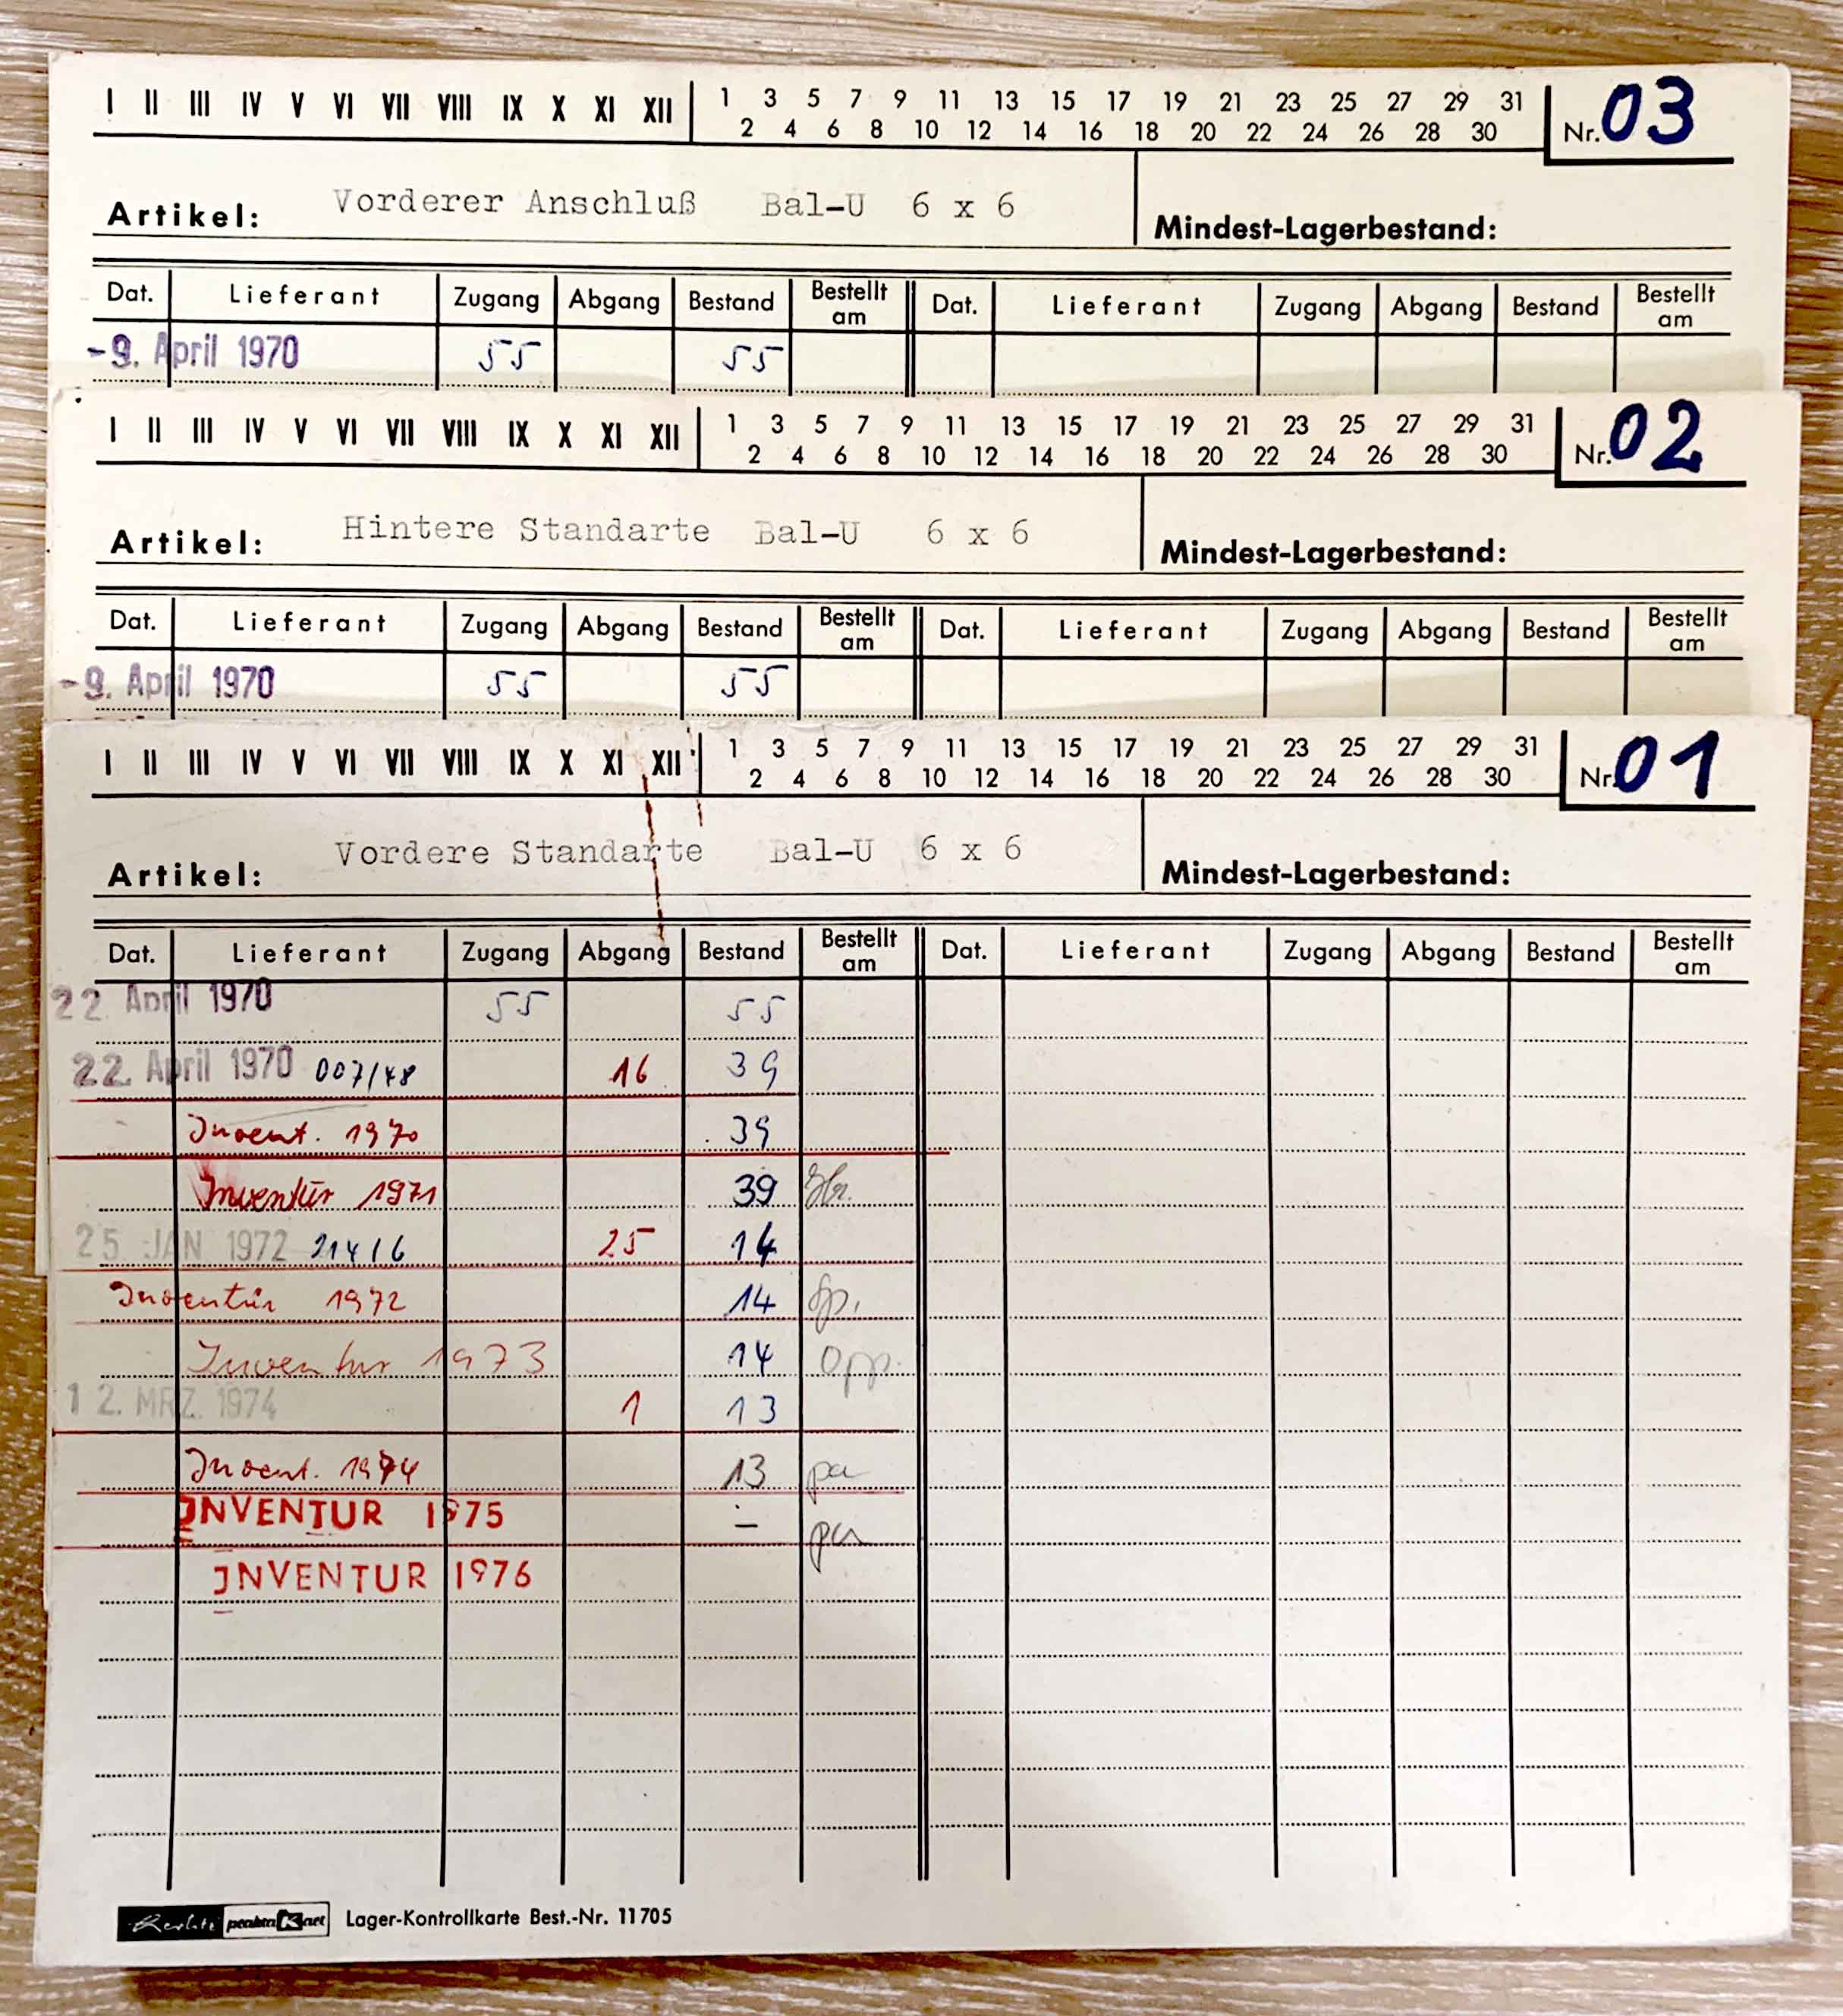 I II III IV V VI VII VIII IX X XI XII 1 3 5 7 9 11 13 15 17 19 21 23 25 27 29 31
2 4 6 8 10 12 14 16 18 20 22 24 26 28 30
Nr. 03
Artikel: Vorderer Anschluß Bal-U 6 x 6 Mindest-Lagerbestand:
Dat. Lieferant Zugang Abgang Bestand Bestellt am Dat. Lieferant Zugang Abgang Bestand Bestellt am
-9. April 1970 55 55
I II III IV V VI VII VIII IX X XI XII 1 3 5 7 9 11 13 15 17 19 21 23 25 27 29 31
2 4 6 8 10 12 14 16 18 20 22 24 26 28 30
Nr. 02
Artikel: Hintere Standarte Bal-U 6 x 6 Mindest-Lagerbestand:
Dat. Lieferant Zugang Abgang Bestand Bestellt am Dat. Lieferant Zugang Abgang Bestand Bestellt am
-9. April 1970 55 55
I II III IV V VI VII VIII IX X XI XII 1 3 5 7 9 11 13 15 17 19 21 23 25 27 29 31
2 4 6 8 10 12 14 16 18 20 22 24 26 28 30
Nr. 01
Artikel: Vordere Standarte Bal-U 6 x 6 Mindest-Lagerbestand:
Dat. Lieferant Zugang Abgang Bestand Bestellt am Dat. Lieferant Zugang Abgang Bestand Bestellt am
22. April 1970 55 55
22. April 1970 007/48 16 39
Invent. 1970 39
Inventur 1971 39
25. JAN 1972 214/6 25 14
Inventur 1972 14
Inventur 1973 14
12. MRZ. 1974 1 13
Invent. 1974 13 pa
INVENTUR 1975 – pa
INVENTUR 1976
Lager-Kontrollkarte Best.-Nr. 11705